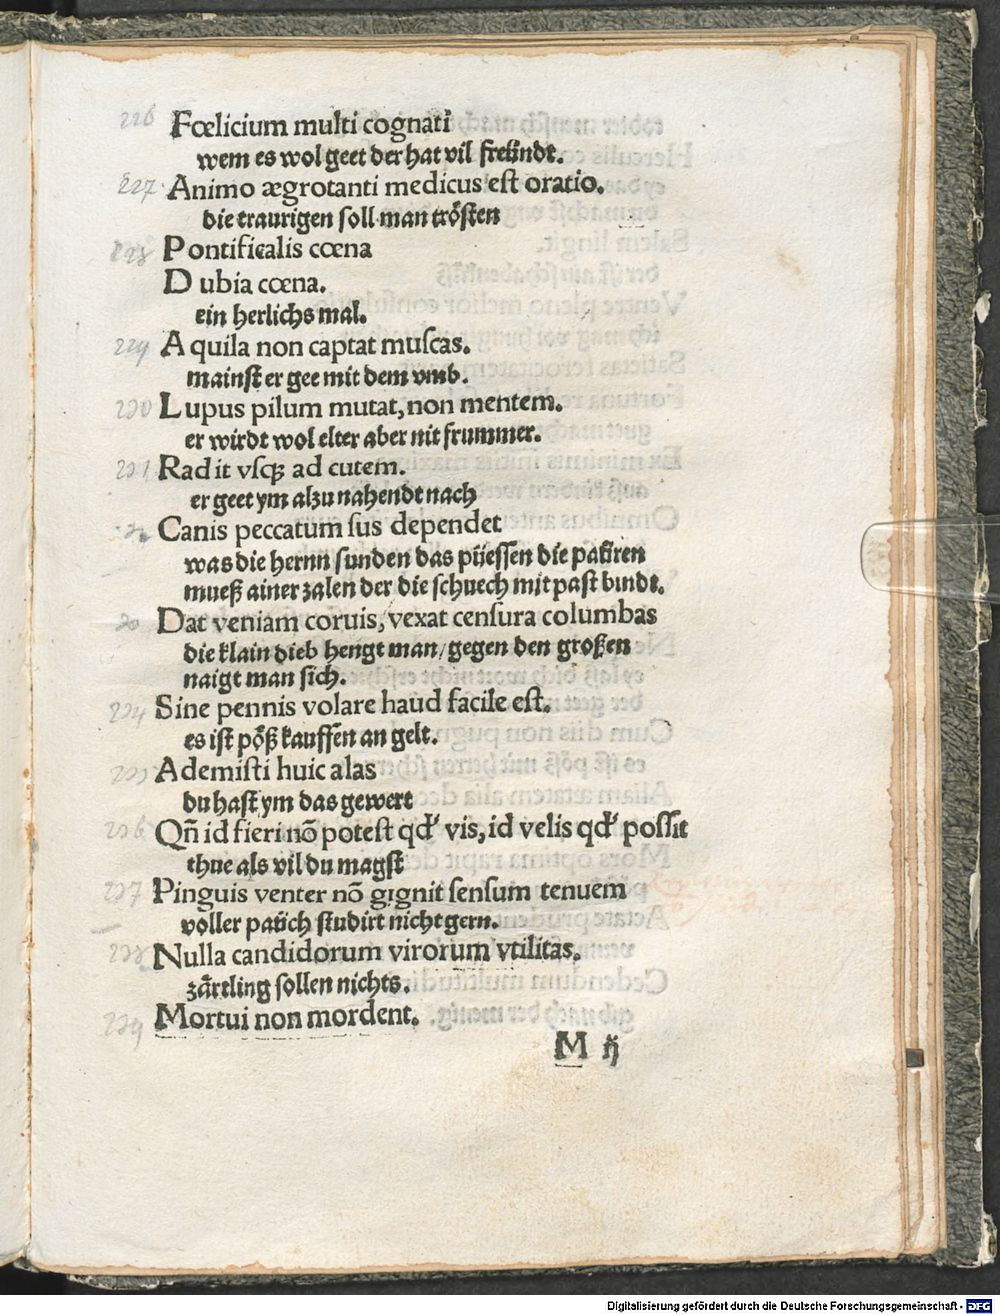 226 Fœlicium multi cognati
wem es wol geet der hat vil freündt.
227 Animo ægrotanti medicus est oratio.
die traurigen soll man trösten
228 Pontificalis cœna
Dubia cœna.
ein herlichs mal.
229 Aquila non captat muscas.
mainst er gee mit dem vmb.
230 Lupus pilum mutat, non mentem.
er wirdt wol elter aber nit frummer.
231 Radit vsqꝫ ad cutem.
er geet ym alzu nahendt nach
Canis peccatum sus dependet
was die hernn sunden das püessen die paüren
mueß ainer zalen der die schuech mit past bindt.
Dat veniam coruis, vexat censura columbas
die klain dieb hengt man/ gegen den großen
naigt man sich.
234 Sine pennis volare haud facile est.
es ist pöß kauffen an gelt.
235 Ademisti huic alas
du hast ym das gewert
236 Qñ id fieri nõ potest qď vis, id velis qď possit
thue als vil du magst
237 Pinguis venter nõ gignit sensum tenuem
voller paüch studirt nicht gern.
238 Nulla candidorum virorum vtilitas.
zärtling sollen nichts.
239 Mortui non mordent.
M ij
Digitalisierung gefördert durch die Deutsche Forschungsgemeinschaft - DFG